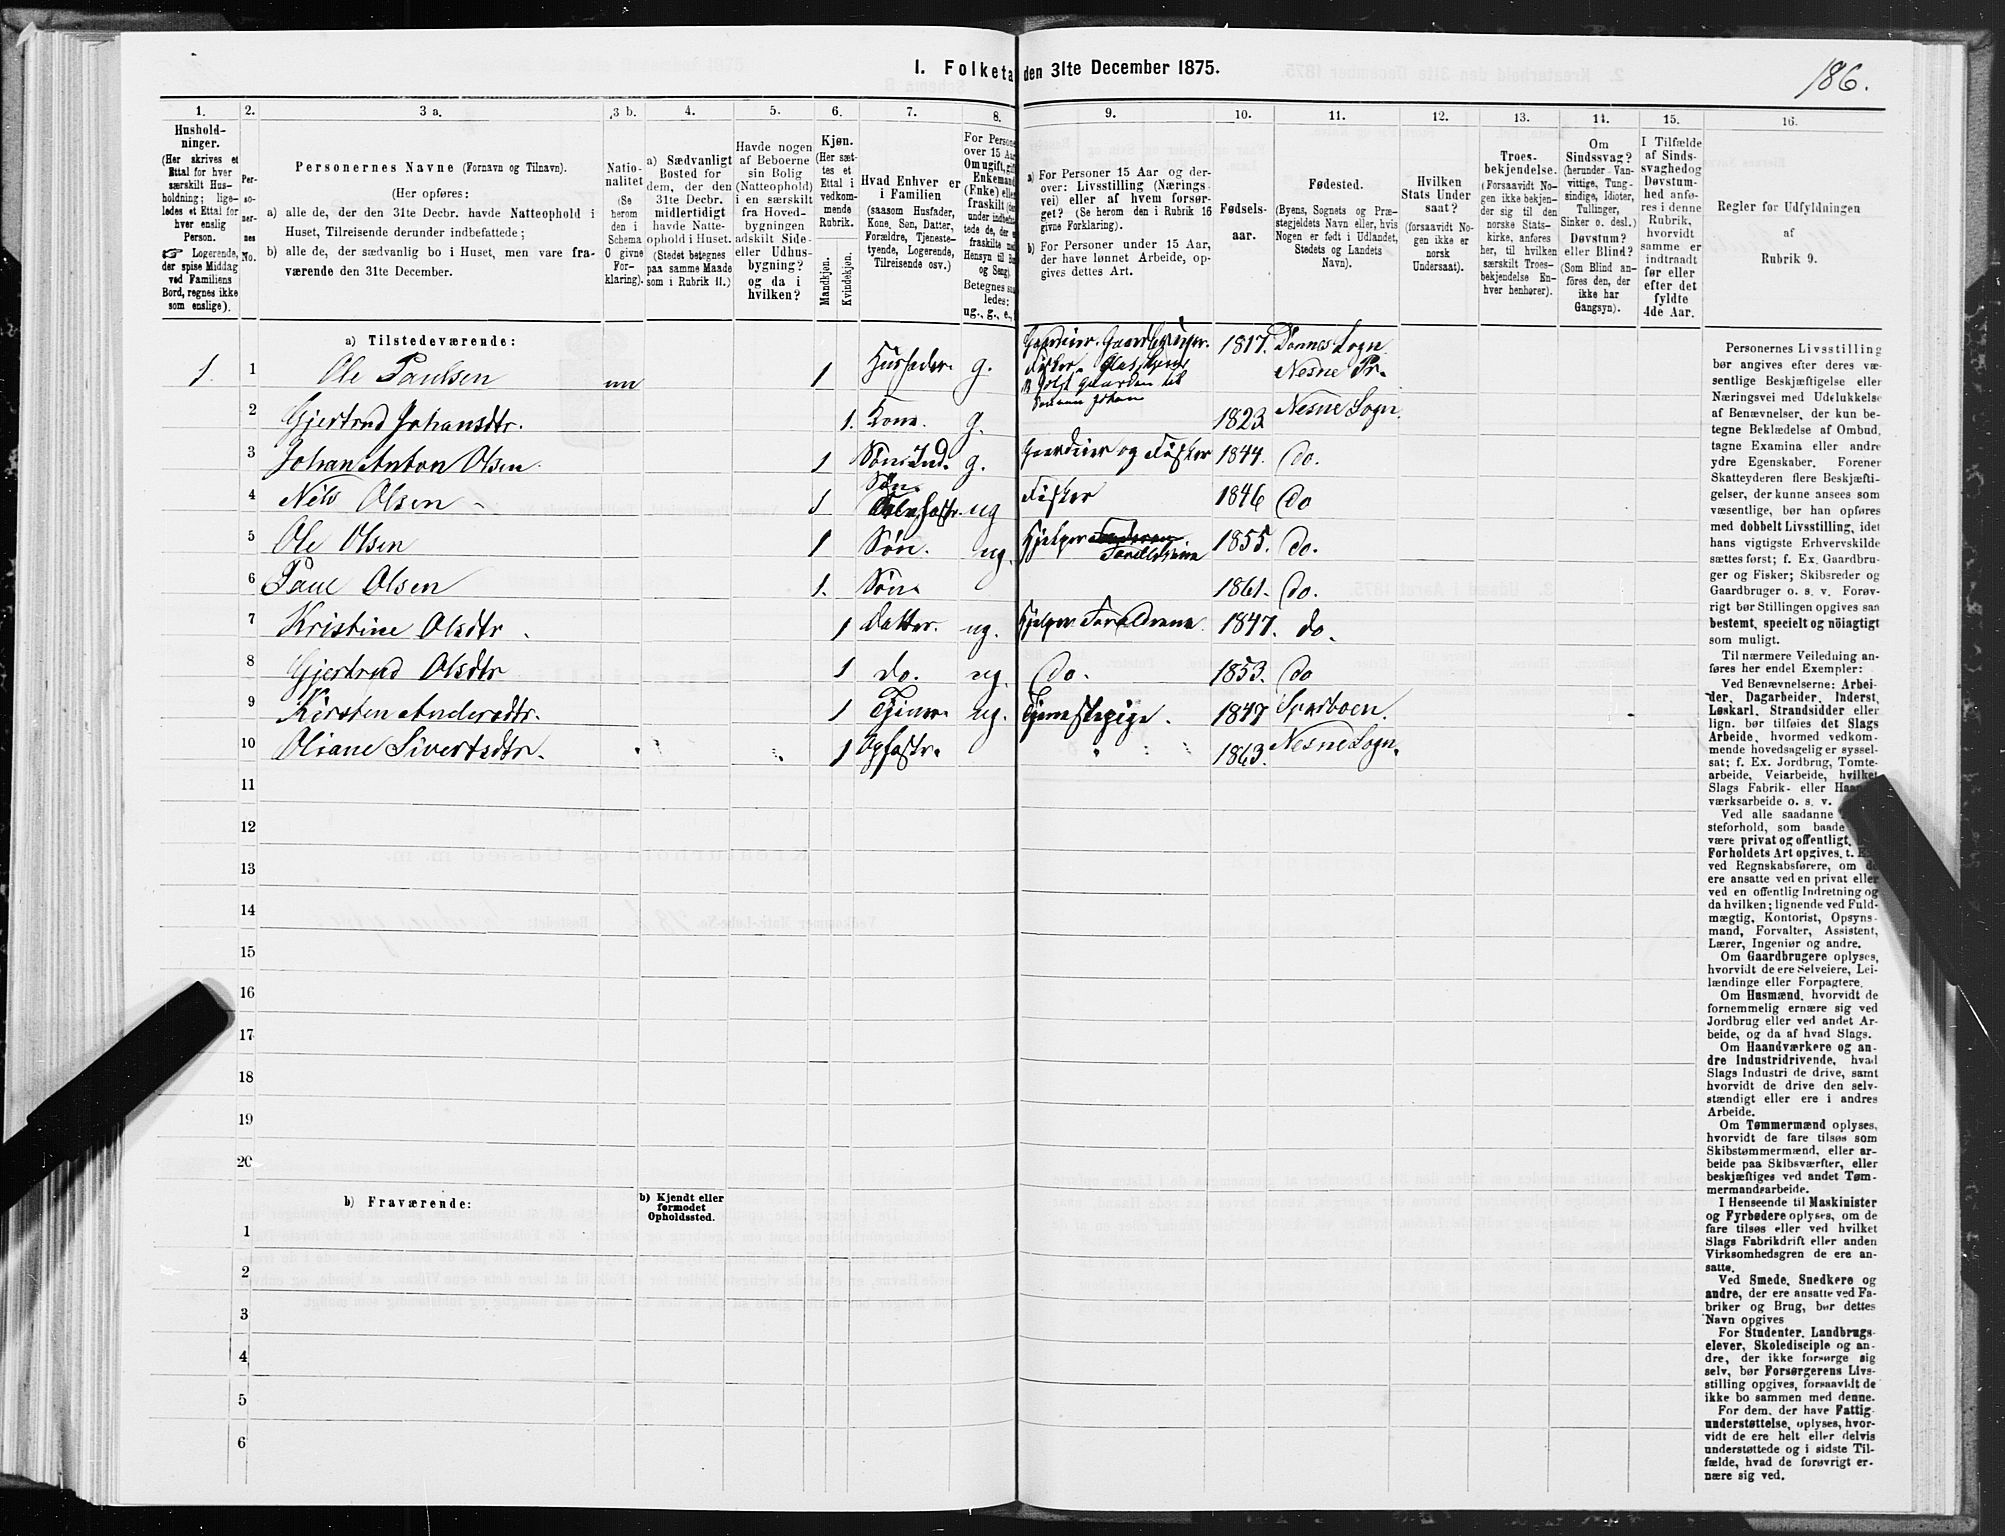 I. Folketal den 31te December 1875.
186.
1.
Hushold-
ninger.
(Her skrives et
Ettal for hver
særskilt Hus-
holdning; lige-
ledes et Ettal for
hver enslig
Person.
☞ Logerende,
der spise Middag
ved Familiens
Bord, regnes ikke
som enslige).
2.
Per-
so-
ner-
nes
No.
3 a.
Personernes Navne (Fornavn og Tilnavn).
(Her opføres:
a) alle de, der den 31te Decbr. havde Natteophold i
Huset, Tilreisende derunder indbefattede;
b) alle de, der sædvanlig bo i Huset, men vare fra-
værende den 31te December.
3 b.
Natio-
nalitet
(Se
herom
den i
Schema
C givne
For-
klaring).
4.
a) Sædvanligt
Bosted for
dem, der den
31te Decbr.
midlertidigt
havde Natte-
ophold i Huset.
(Stedet betegnes
paa samme Maade
som i Rubrik 11.)
5.
Havde nogen
af Beboerne
sin Bolig
(Natteophold)
i en særskilt
fra Hoved-
bygningen
adskilt Side-
eller Udhus-
bygning?
og da i
hvilken?
6.
Kjøn.
(Her sæt-
tes et
Ettal i
vedkom-
mende
Rubrik.
Mandkjøn.
Kvindekjøn.
7.
Hvad Enhver er
i Familien
(saasom Husfader,
Kone, Søn, Datter,
Forældre, Tjeneste-
tyende, Logerende,
Tilreisende osv.)
8.
For Persone
over 15 Aar
Om ugift, gift
Enkemand
(Enke) elle
fraskilt
ug., g., e.,
9.
a) For Personer 15 Aar og der-
over: Livsstilling (Nærings-
vei) eller af hvem forsør-
get? (Se herom den i Rubrik 16
givne Forklaring).
b) For Personer under 15 Aar,
der have lønnet Arbeide, op-
gives dettes Art.
10.
Fødsels-
aar.
11.
Fødested.
(Byens, Sognets og Præ-
stegjeldets Navn eller, hvis
Nogen er født i Udlandet,
Stedets og Landets
Navn).
12.
Hvilken
Stats Under
saat?
(forsaavidt No-
gen ikke er
norsk
Undersaat).
13.
Troes-
bekjendelse.
(Forsaavidt No-
gen ikke bekjen-
der sig til den
norske Stats-
kirke, anføres
her, til hvilken
særskilt Troes-
bekjendelse En-
hver henhører).
14.
Om
Sindssvag?
(herunder Van-
vittige, Tung-
sindige, Idioter,
Tullinger,
Sinker o. desl.)
Døvstum?
eller Blind?
(Som Blind an-
føres den, der
ikke har
Gangsyn).
15.
I Tilfælde
af Sinds-
svaghed og
Døvstum-
hed anfø-
res i denne
Rubrik,
hvorvidt
samme er
indtraadt
før eller
efter det
fyldte
4de Aar.
16.
Regler for Udfyldningen
af
Rubrik 9.
a) Tilstedeværende:
1. 1 Ole Paulsen nn 1 Husfader g. Gaardeier. Gaardbruger. Fisker. 1817. Dønnes Sogn Nesne Pr.
2 Gjertrud Johansdtr. 1. Kone g. 1823 Nesne Sogn
3 Johan Anton Olsen. 1 Søn g. Gaardeier og Fisker 1844. do.
4 Nils Olsen 1 Søn ug Fisker 1846 do
5 Ole Olsen 1 Søn. ug. Hjelper Forældrene 1855. do.
6 Paul Olsen 1. Søn 1861. do.
7 Kristine Olsdtr. 1 Datter. ug. Hjelper Forældrene 1847. do.
8 Gjertrud Olsdtr 1 do. ug. do. 1853. do
9 Kirsten Andersdtr. 1 Tjener ug. Tjenestepige. 1847
10 Oliane Sivertsdtr. 1 Opfostr. 1863. Nesne Sogn.
11
12
13
14
15
16
17
18
19
20
b) Fraværende:
b) Kjendt eller
formodet
Opholdssted.
1
2
3
4
5
6
Personernes Livsstilling
bør angives efter deres væ-
sentlige Beskjæftigelse eller
Næringsvei med Udelukkelse
af Benævnelser, der kun be-
tegne Beklædelse af Ombud,
tagne Examina eller andre
ydre Egenskaber. Forener
Skatteyderen flere Beskjæfti-
gelser, der kunne ansees som
væsentlige, bør han opføres
med dobbelt Livsstilling, idet
hans vigtigste Erhvervskilde
sættes først; f. Ex. Gaardbru-
ger og Fisker; Skibsreder og
Gaardbruger o. s. v. Forøv-
rigt bør Stillingen opgives saa
bestemt, specielt og nöiagtigt
som muligt.
Til nærmere Veiledning an-
føres her endel Exempler:
Ved Benævnelserne: Arbei-
der, Dagarbeider, Inderst,
Løskarl, Strandsidder eller
lign. bør tilføies det Slags
Arbeide, hvormed vedkom-
mende hovedsagelig er syssel-
sat; f. Ex. Jordbrug, Tomte-
arbeide, Veiarbeide, hvilket
Slags Fabrik- eller
værksarbeide o. s. v.
Ved alle saadanne
steforhold, som baade
være privat og offentligt,
Forholdets Art opgives, t.
ved Regnskabsførere, om
ere ansatte ved en privat eller
ved en offentlig Indretning og
da hvilken; lignende ved Fuld-
mægtig, Kontorist, Opsyns-
mand, Forvalter, Assistent,
Lærer, Ingeniør og andre.
Om Gaardbrugere oplyses,
hvorvidt de ere Selveiere, Lei-
lændinge eller Forpagtere.
Om Husmænd, hvorvidt de
fornemmelig ernære sig ved
Jordbrug eller ved andet Ar-
beide, og da af hvad Slags.
Om Haandværkere og an-
dre Industridrivende, hvad
Slags Industri de drive, samt
hvorvidt de drive den selv-
stændigt eller ere i andres
Arbeide.
Om Tømmermænd oplyses,
hvorvidt de fare tilsøs som
Skibstømmermænd, eller ar-
beide paa Skibsværfter, eller
beskjæftiges ved andet Tøm-
mermandsarbeide.
I Henseende til Maskinister
og Fyrbødere oplyses, om de
fare tilsøs eller ved hvilket
Slags Fabrikdrift eller anden
Virksomhedsgren de ere an-
satte.
Ved Smede, Snedkere og
andre, der ere ansatte ved Fa-
briker og Brug, bør dettes
Navn opgives
For Studenter, Landbrugs-
elever, Skoledisciple og an-
dre, der ikke forsørge sig
selv, bør Forsørgerens Livs-
stilling opgives, forsaavidt de
ikke bo sammen med denne.
For dem, der have Fattig-
understøttelse, oplyses, hvor-
vidt de ere helt eller delvis
understøttede og i sidste Til-
fælde, hvad de forøvrigt er-
nære sig ved.